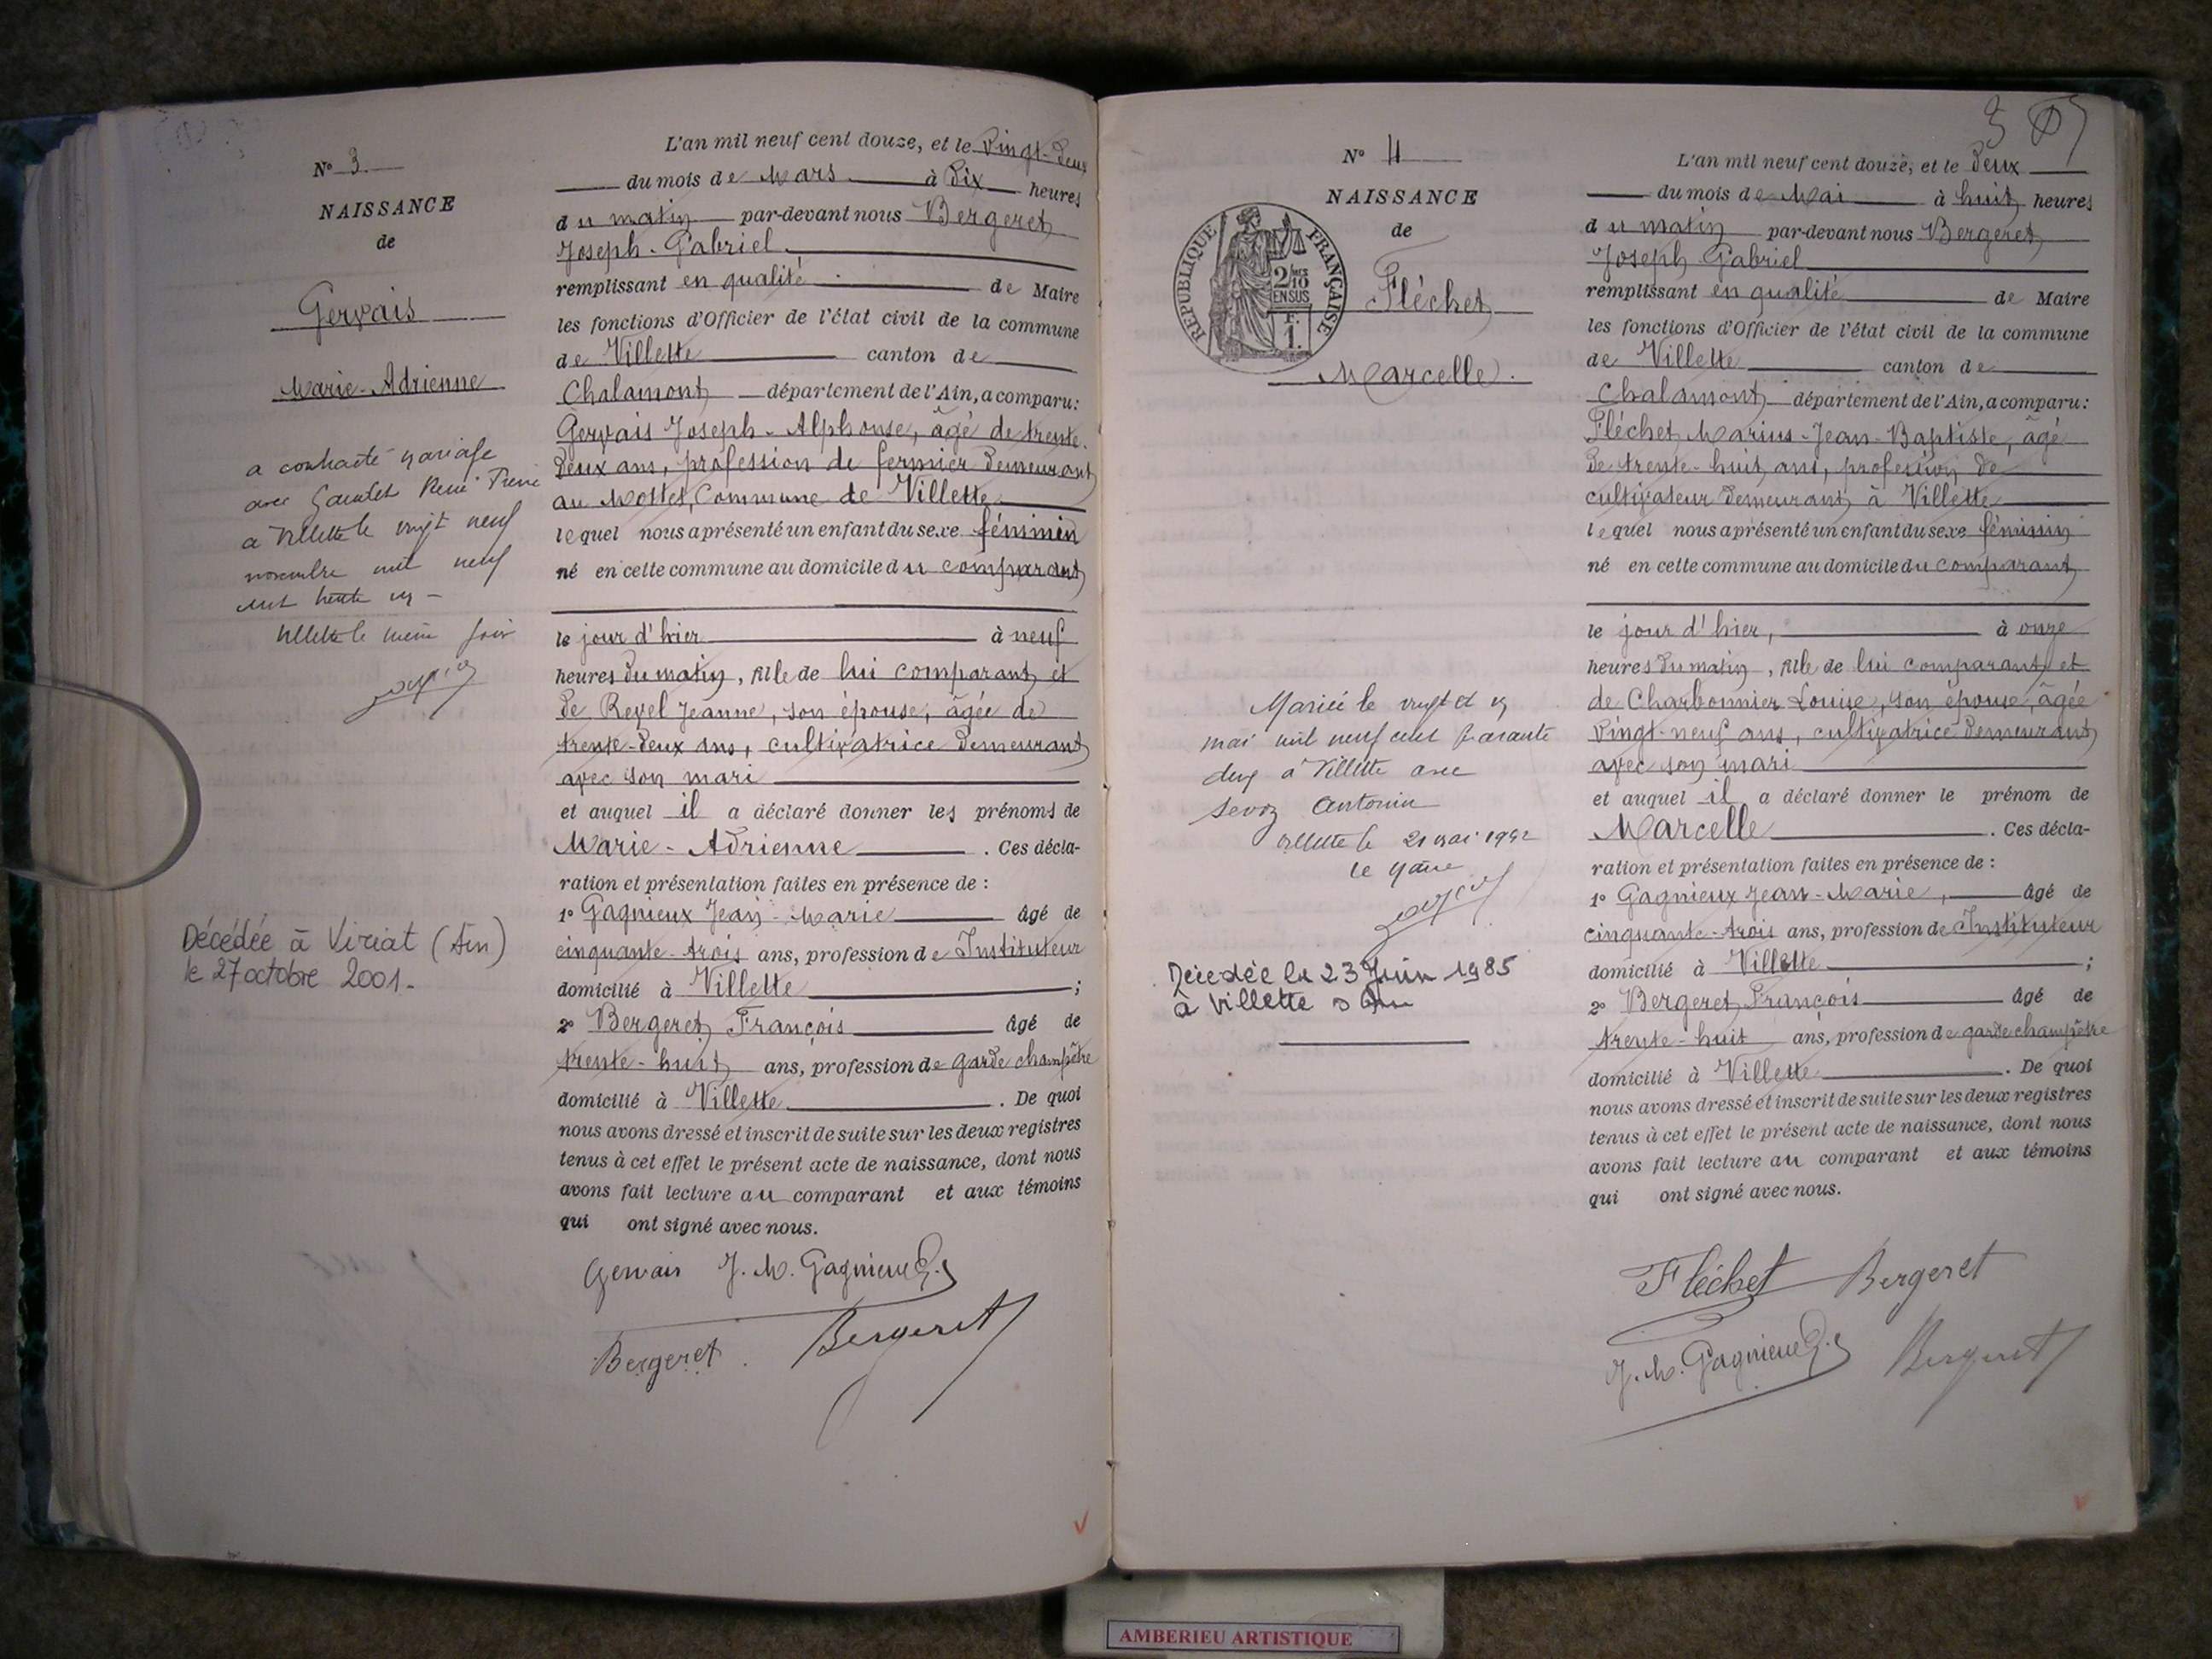 N° 3
NAISSANCE
de
Gervais
Marie-Adrienne
a contracté mariage
avec René Pierre
à Villette le vingt neuf
novembre mil neuf
cent trente un
Villette le même jour
Décédée à Viriat (Ain)
le 27 octobre 2001.
L'an mil neuf cent douze, et le vingt-deux
du mois de Mars à dix heures
du matin par-devant nous Bergeret
Joseph-Gabriel
remplissant en qualité de Maire
les fonctions d'Officier de l'état civil de la commune
de Villette canton de
Chalamont département de l'Ain, a comparu:
Gervais Joseph-Alphonse, âgé de trente-
deux ans, profession de fermier demeurant
au Mottet, Commune de Villette
lequel nous a présenté un enfant du sexe féminin
né en cette commune au domicile du comparant
le jour d'hier à neuf
heures du matin, fille de lui comparant et
de Revel Jeanne, son épouse, âgée de
trente-deux ans, cultivatrice demeurant
avec son mari
et auquel il a déclaré donner les prénoms de
Marie-Adrienne. Ces décla-
ration et présentation faites en présence de :
1° Gagnieux Jean-Marie âgé de
cinquante-trois ans, profession de Instituteur
domicilié à Villette ;
2° Bergeret François âgé de
trente-huit ans, profession de garde champêtre
domicilié à Villette. De quoi
nous avons dressé et inscrit de suite sur les deux registres
tenus à cet effet le présent acte de naissance, dont nous
avons fait lecture au comparant et aux témoins
qui ont signé avec nous.
Gervais J. M. Gagnieux
Bergeret Bergeret
N° 4
NAISSANCE
de
REPUBLIQUE FRANÇAISE
2/10 EN SUS
F. 1.
Fléchet
Marcelle.
Mariée le vingt et un
mai mil neuf cent quarante
deux à Villette avec
Sevoz Antonin
Villette le 21 mai 1942
le Maire
Décédée le 23 Juin 1985
à Villette s Ain
3
L'an mil neuf cent douze, et le deux
du mois de Mai à huit heures
du matin par-devant nous Bergeret
Joseph Gabriel
remplissant en qualité de Maire
les fonctions d'Officier de l'état civil de la commune
de Villette canton de
Chalamont département de l'Ain, a comparu:
Fléchet Marius-Jean-Baptiste, âgé
de trente-huit ans, profession de
cultivateur demeurant à Villette
lequel nous a présenté un enfant du sexe féminin
né en cette commune au domicile du comparant
le jour d'hier, à onze
heures du matin, fille de lui comparant et
de Charbonnier Louise, son épouse, âgée
vingt-neuf ans, cultivatrice demeurant
avec son mari
et auquel il a déclaré donner le prénom de
Marcelle. Ces décla-
ration et présentation faites en présence de :
1° Gagnieux Jean-Marie, âgé de
cinquante-trois ans, profession de Instituteur
domicilié à Villette ;
2° Bergeret François âgé de
trente-huit ans, profession de garde champêtre
domicilié à Villette. De quoi
nous avons dressé et inscrit de suite sur les deux registres
tenus à cet effet le présent acte de naissance, dont nous
avons fait lecture au comparant et aux témoins
qui ont signé avec nous.
Fléchet Bergeret
J. M. Gagnieux Bergeret
AMBERIEU ARTISTIQUE